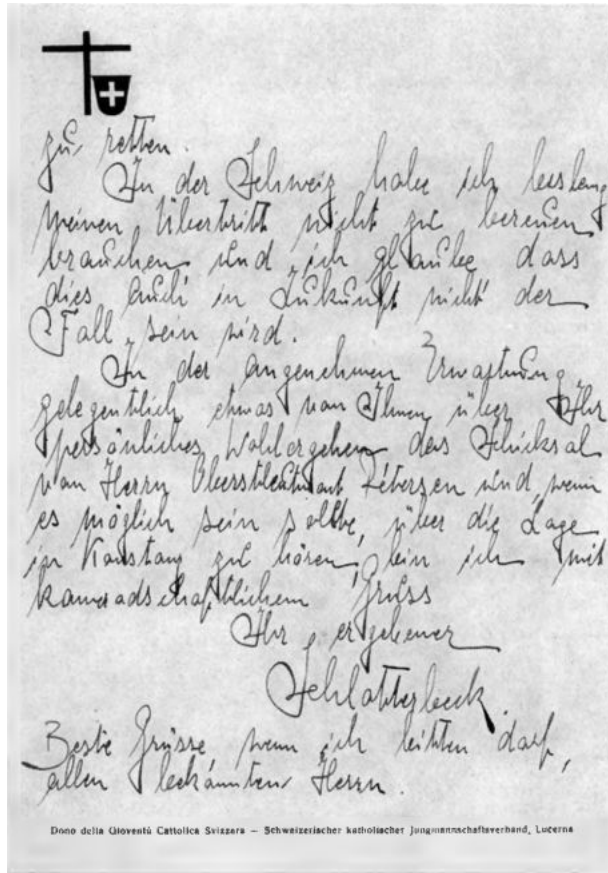 zu retten.
In der Schweiz habe ich bislang
meinen Übertritt nicht zu bereuen
brauchen und ich glaube dass
dies auch in Zukunft nicht der
Fall sein wird.
In der angenehmen Erwartung,
gelegentlich etwas von Ihnen über Ihr
persönliches Wohlergehen das Schicksal
von Herrn Oberstleutnant Petersen und, wenn
es möglich sein sollte, über die Lage
in Konstanz zu hören, bin ich mit
kameradschaftlichem Gruss
Ihr ergebener
Schlotterbeck
Beste Grüsse wenn ich bitten darf,
allen bekannten Herrn.
Dono della Gioventù Cattolica Svizzera — Schweizerischer katholischer Jungmannschaftsverband, Lucerna